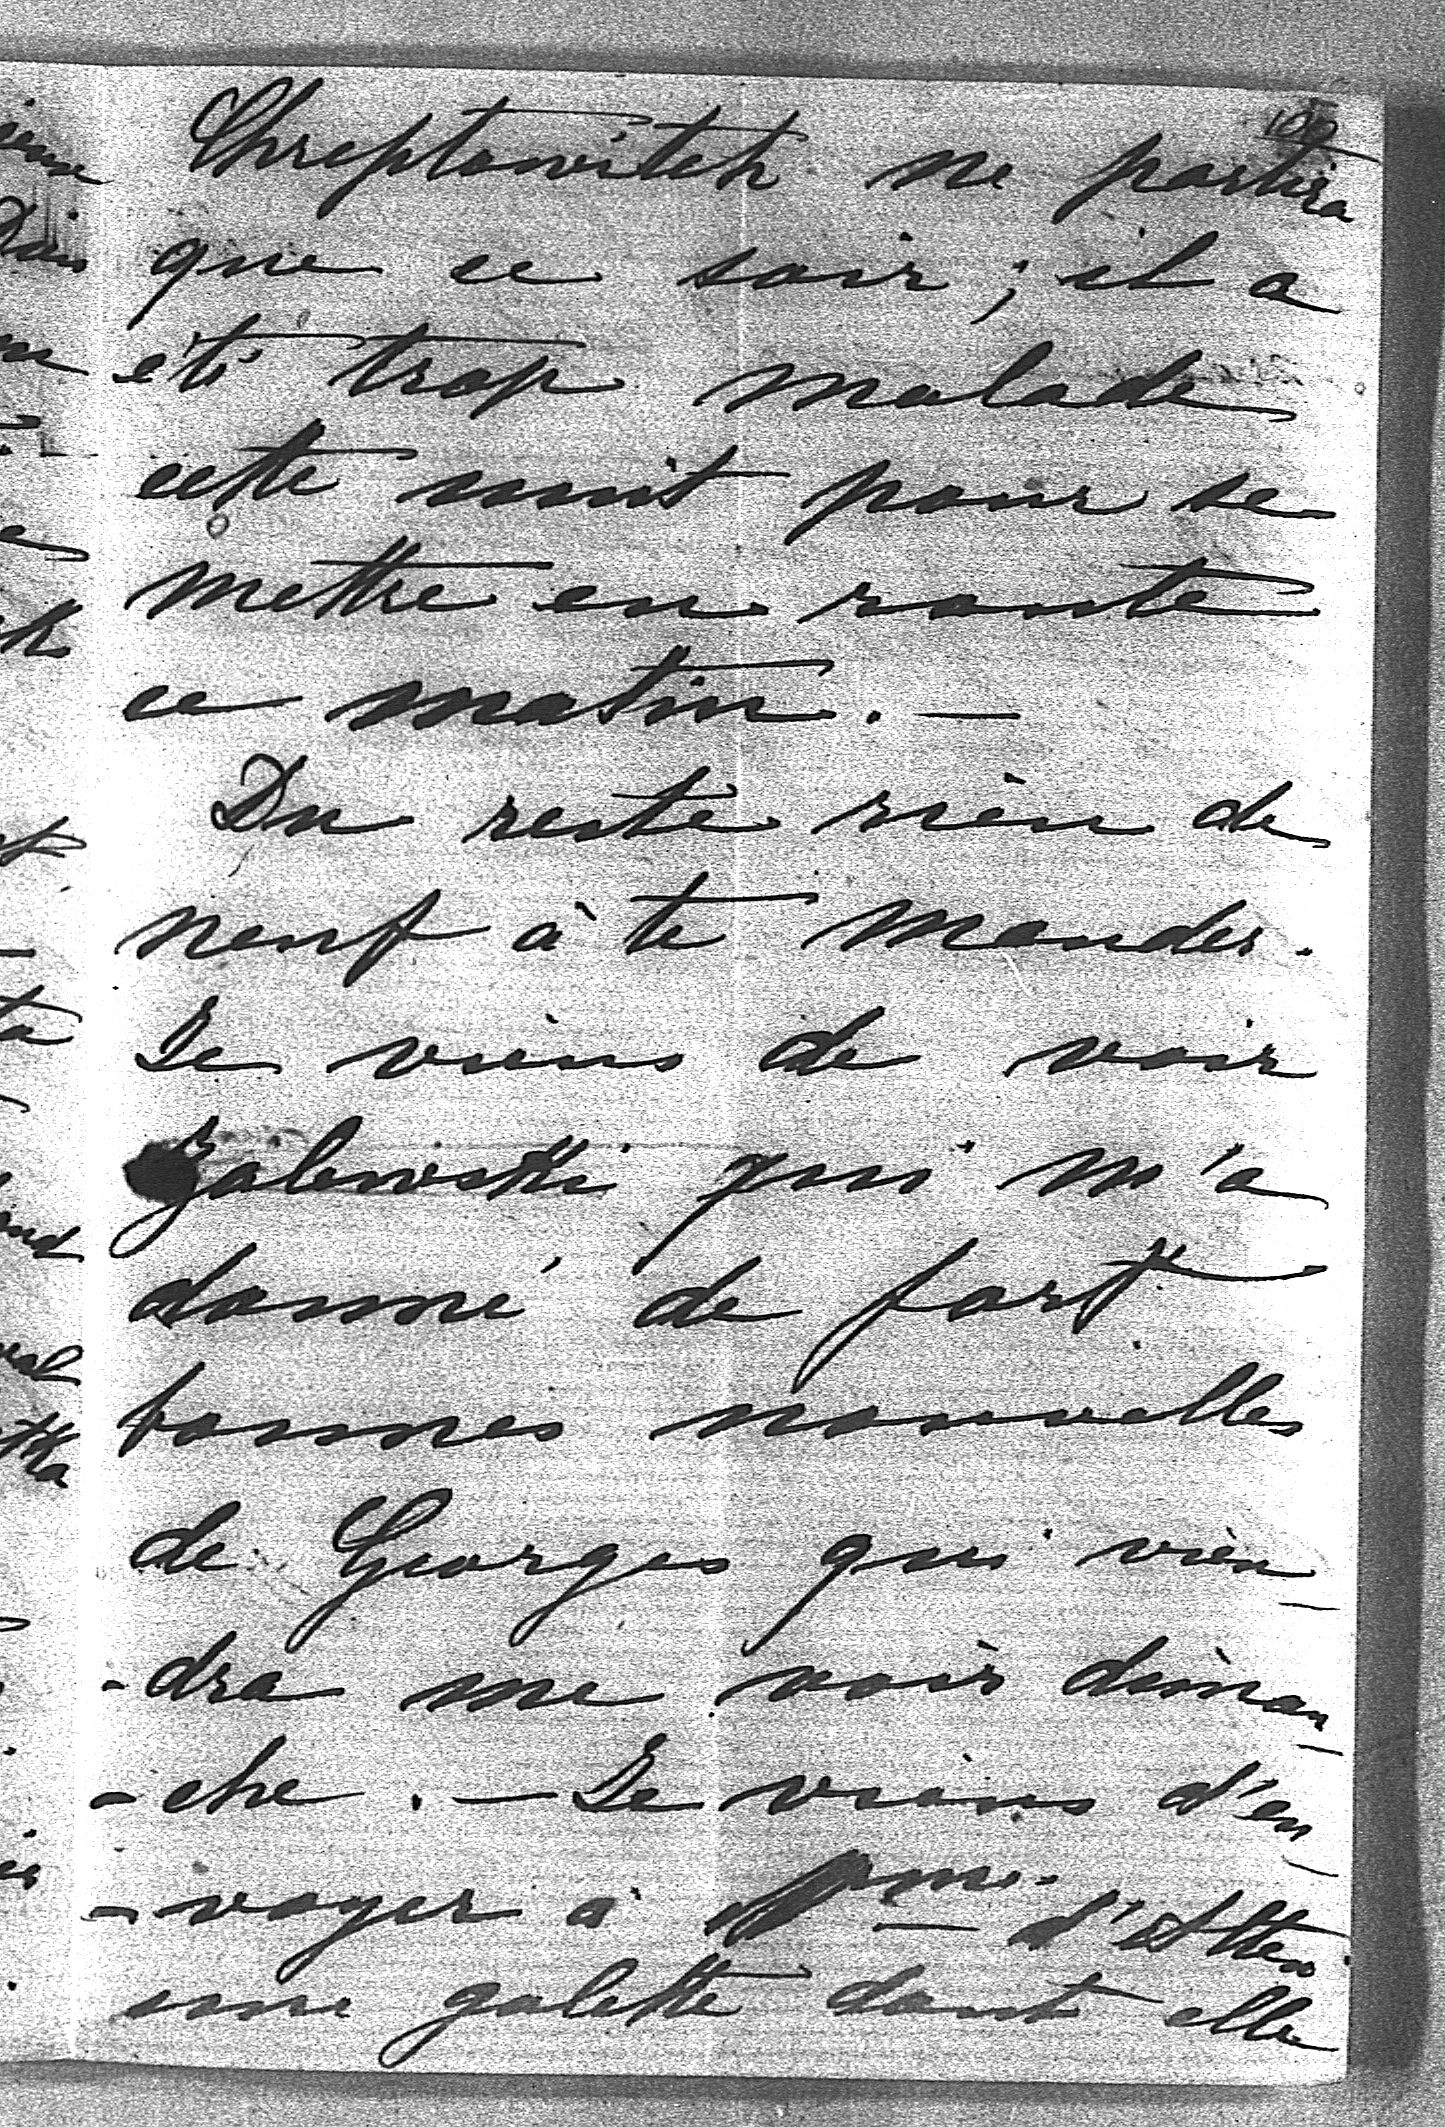 Chreptowitch ne partira
que ce soir ; il a
été trop malade
cette nuit pour se
mettre en route
ce matin. —
Du reste rien de
neuf à te mander.
Je viens de voir
Zalewski qui m'a
donné de fort
bonnes nouvelles
de Georges qui vien-
-dra me voir diman-
-che. — Je viens d'en-
-voyer à Mme. d'Atten
une galette dont elle